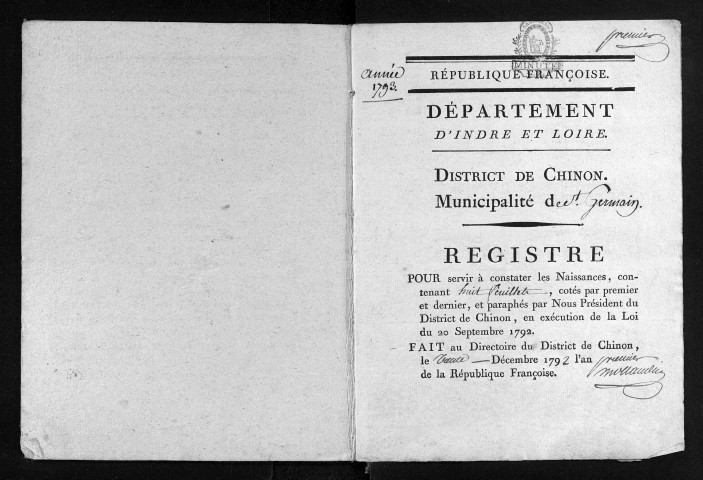 premier
MINUTE
année
1793.
RÉPUBLIQUE FRANÇOISE.
DÉPARTEMENT
D'INDRE ET LOIRE.
DISTRICT DE CHINON.
Municipalité de St. Germain.
REGISTRE
POUR servir à constater les Naissances, con-
tenant huit feuillets, cotés par premier
et dernier, et paraphés par Nous Président du
District de Chinon, en exécution de la Loi
du 20 Septembre 1792.
FAIT au Directoire du District de Chinon,
le trente Décembre 1792 l'an premier
de la République Françoise.